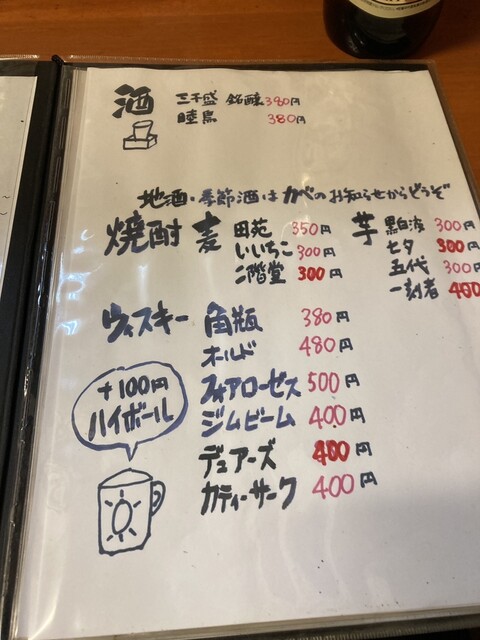 酒 三千盛 銘醸 380円
睦鳥 380円
地酒・季節酒はカベのお知らせからどうぞ
焼酎 麦 田苑 350円
いいちこ 300円
二階堂 300円
芋 黒白波 300円
七夕 300円
五代 300円
一刻者 400
ウィスキー 角瓶 380円
オールド 480円
フォアローゼス 500円
ジムビーム 400円
デュアーズ 400円
カティーサーク 400円
+100円
ハイボール